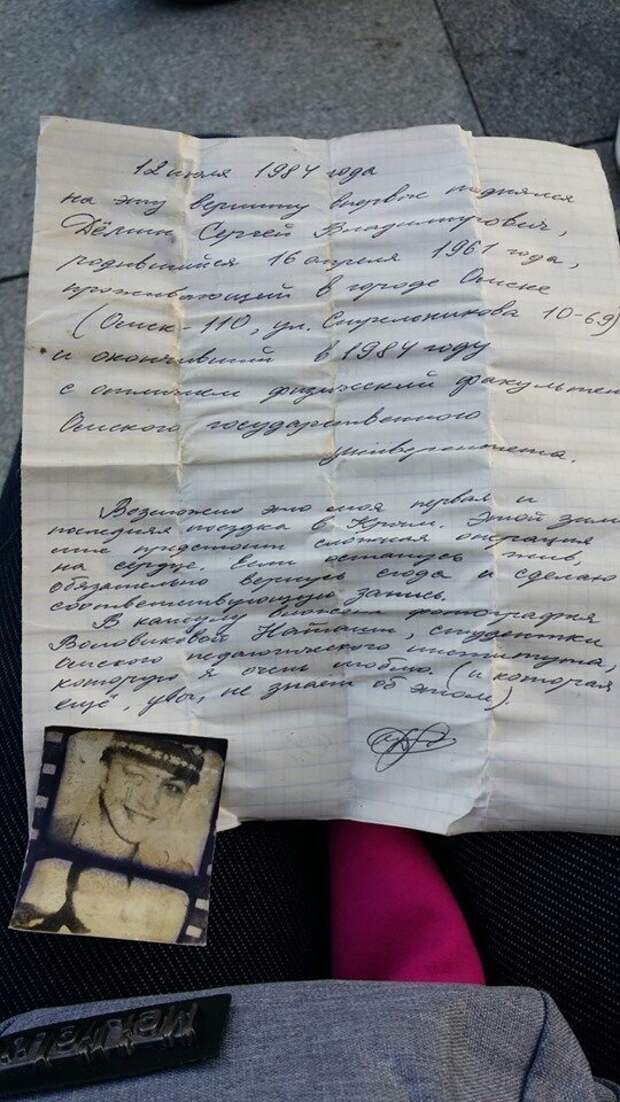 12 июля 1984 года
на эту вершину впервые поднялся
Дёмин Сергей Владимирович,
родившийся 16 апреля 1961 года,
проживающий в городе Омске
(Омск-110, ул. Стрельникова 10-69)
и окончивший в 1984 году
с отличием физический факультет
Омского государственного
университета.
Возможно это моя первая и
последняя поездка в Крым. Этой зимой
мне предстоит сложная операция
на сердце. Если останусь жив,
обязательно вернусь сюда и сделаю
соответствующую запись.
В капсулу вложена фотография
Воловиковой Наташи, студентки
омского педагогического института,
которую я очень люблю. (и которая
ещё, увы, не знает об этом).